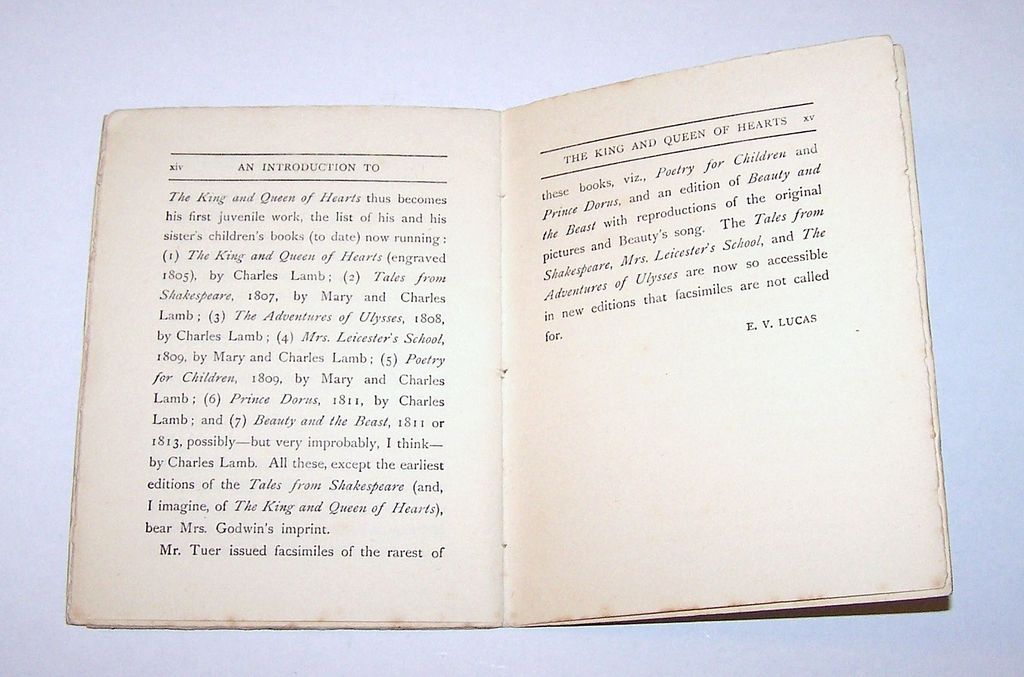 xiv AN INTRODUCTION TO
The King and Queen of Hearts thus becomes
his first juvenile work, the list of his and his
sister's children's books (to date) now running:
(1) The King and Queen of Hearts (engraved
1805), by Charles Lamb; (2) Tales from
Shakespeare, 1807, by Mary and Charles
Lamb; (3) The Adventures of Ulysses, 1808,
by Charles Lamb; (4) Mrs. Leicester's School,
1809, by Mary and Charles Lamb; (5) Poetry
for Children, 1809, by Mary and Charles
Lamb; (6) Prince Dorus, 1811, by Charles
Lamb; and (7) Beauty and the Beast, 1811 or
1813, possibly—but very improbably, I think—
by Charles Lamb. All these, except the earliest
editions of the Tales from Shakespeare (and,
I imagine, of The King and Queen of Hearts),
bear Mrs. Godwin's imprint.
Mr. Tuer issued facsimiles of the rarest of
THE KING AND QUEEN OF HEARTS xv
these books, viz., Poetry for Children and
Prince Dorus, and an edition of Beauty and
the Beast with reproductions of the original
pictures and Beauty's song. The Tales from
Shakespeare, Mrs. Leicester's School, and The
Adventures of Ulysses are now so accessible
in new editions that facsimiles are not called
for.
E. V. LUCAS